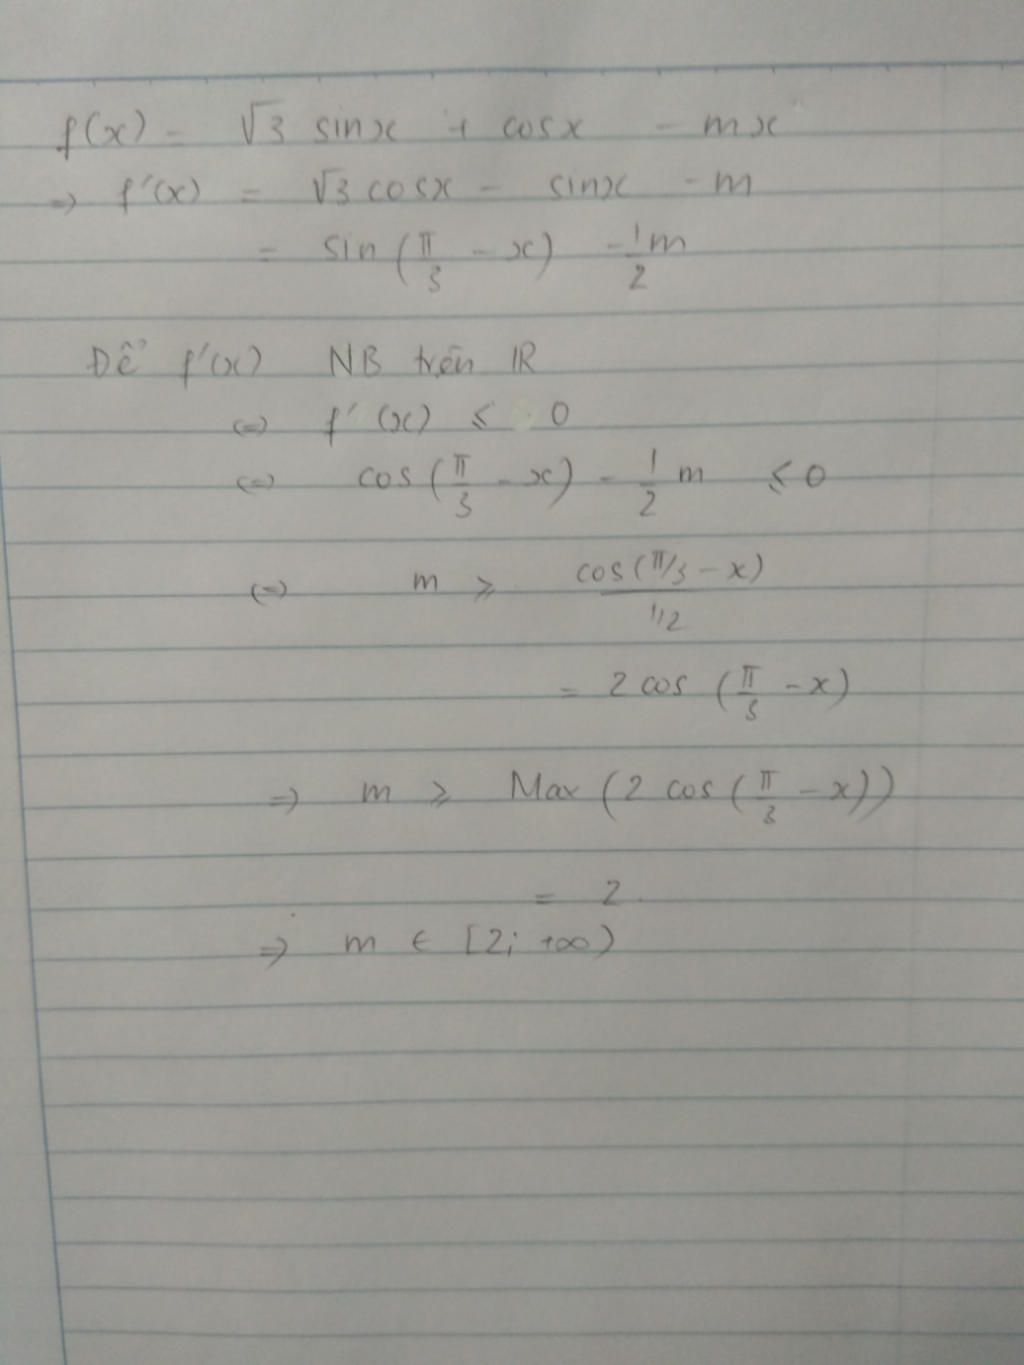 f(x) = √3 sinx + cosx - mx
=> f'(x) = √3 cosx - sinx - m
= sin(π/3 - x) - 1/2 m
Để f'(x) NB trên IR
<=> f'(x) ≤ 0
<=> cos(π/3 - x) - 1/2 m ≤ 0
<=> m ≥ cos(π/3 - x) / 1/2
= 2 cos (π/3 - x)
=> m ≥ Max (2 cos (π/3 - x))
= 2
=> m ∈ [2; +∞)